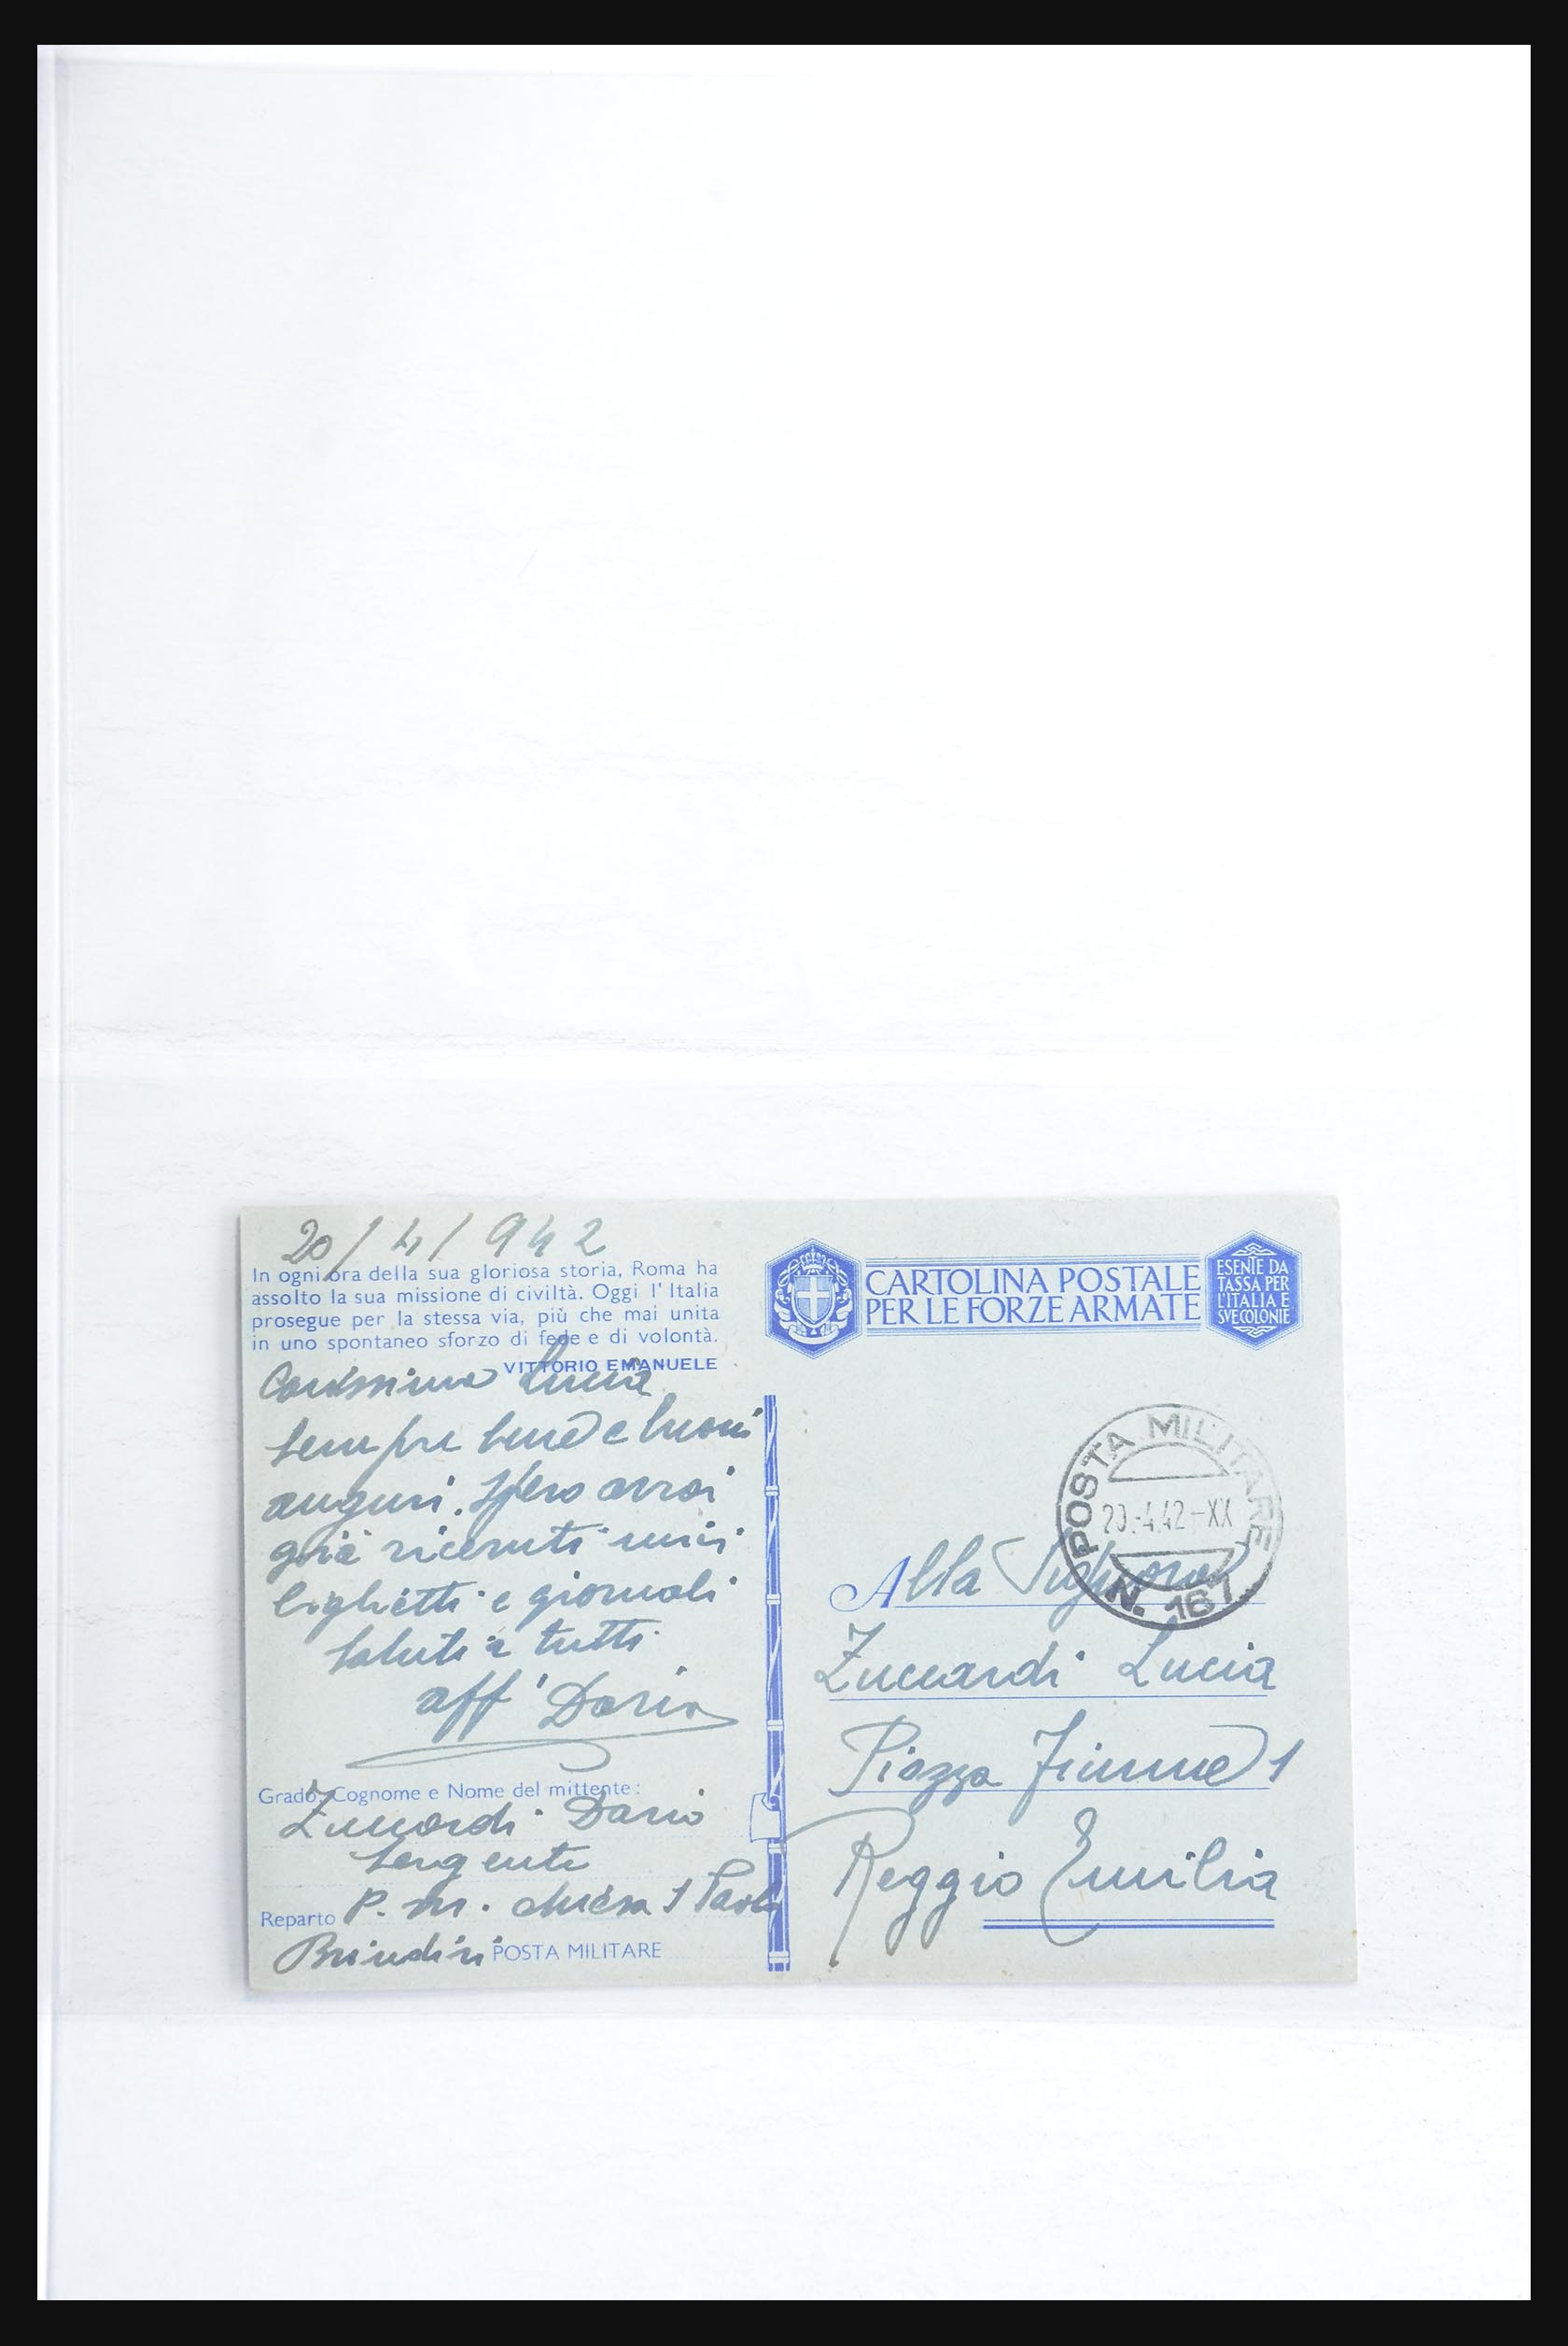 20/4/942
In ogni ora della sua gloriosa storia, Roma ha
assolto la sua missione di civiltà. Oggi l'Italia
prosegue per la stessa via, più che mai unita
in uno spontaneo sforzo di fede e di volontà.
VITTORIO EMANUELE
Carissima Lucia
sempre bene e buoni
auguri. Spero avrai
già ricevuti miei
biglietti e giornali
saluti a tutti
aff' Dario
Grado, Cognome e Nome del mittente:
Zuccardi Dario
Sergente
Reparto P. M. chiesa S Paolo
Brindisi POSTA MILITARE
CARTOLINA POSTALE
PER LE FORZE ARMATE
ESENTE DA
TASSA PER
L'ITALIA E
SVE COLONIE
POSTA MILITARE
20.-4.42-XX
N. 167
Alla
Zuccardi Lucia
Piazza Fiume 1
Reggio Emilia